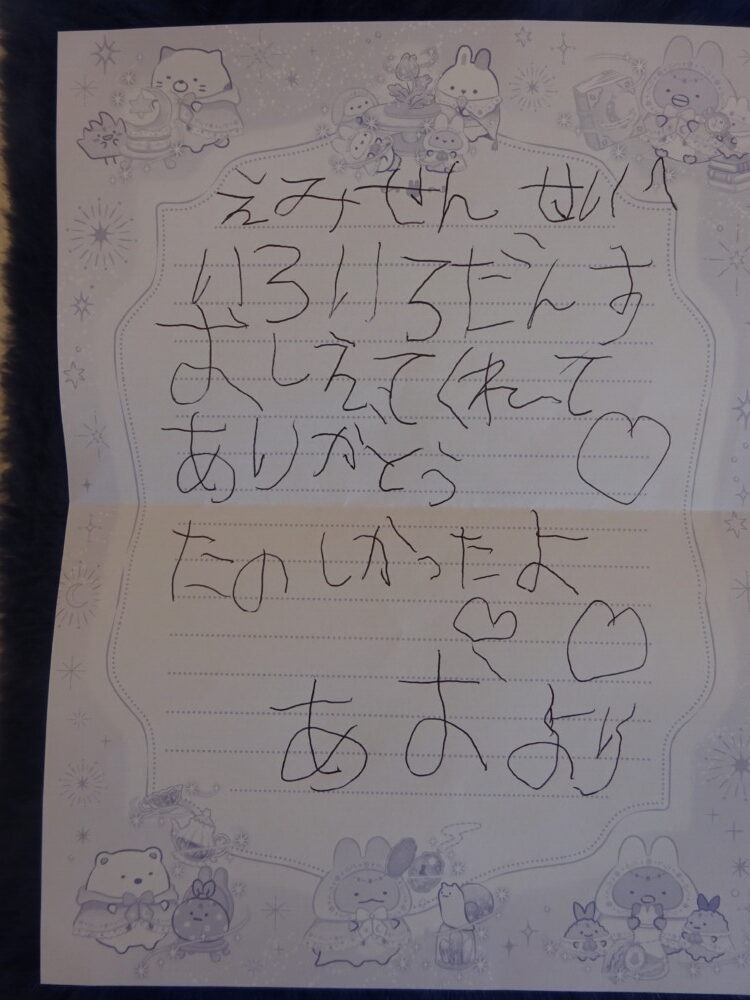 えみせんせいへ
いろいろだんす
おしえてくれて
ありがとう
たのしかったよ
あおより